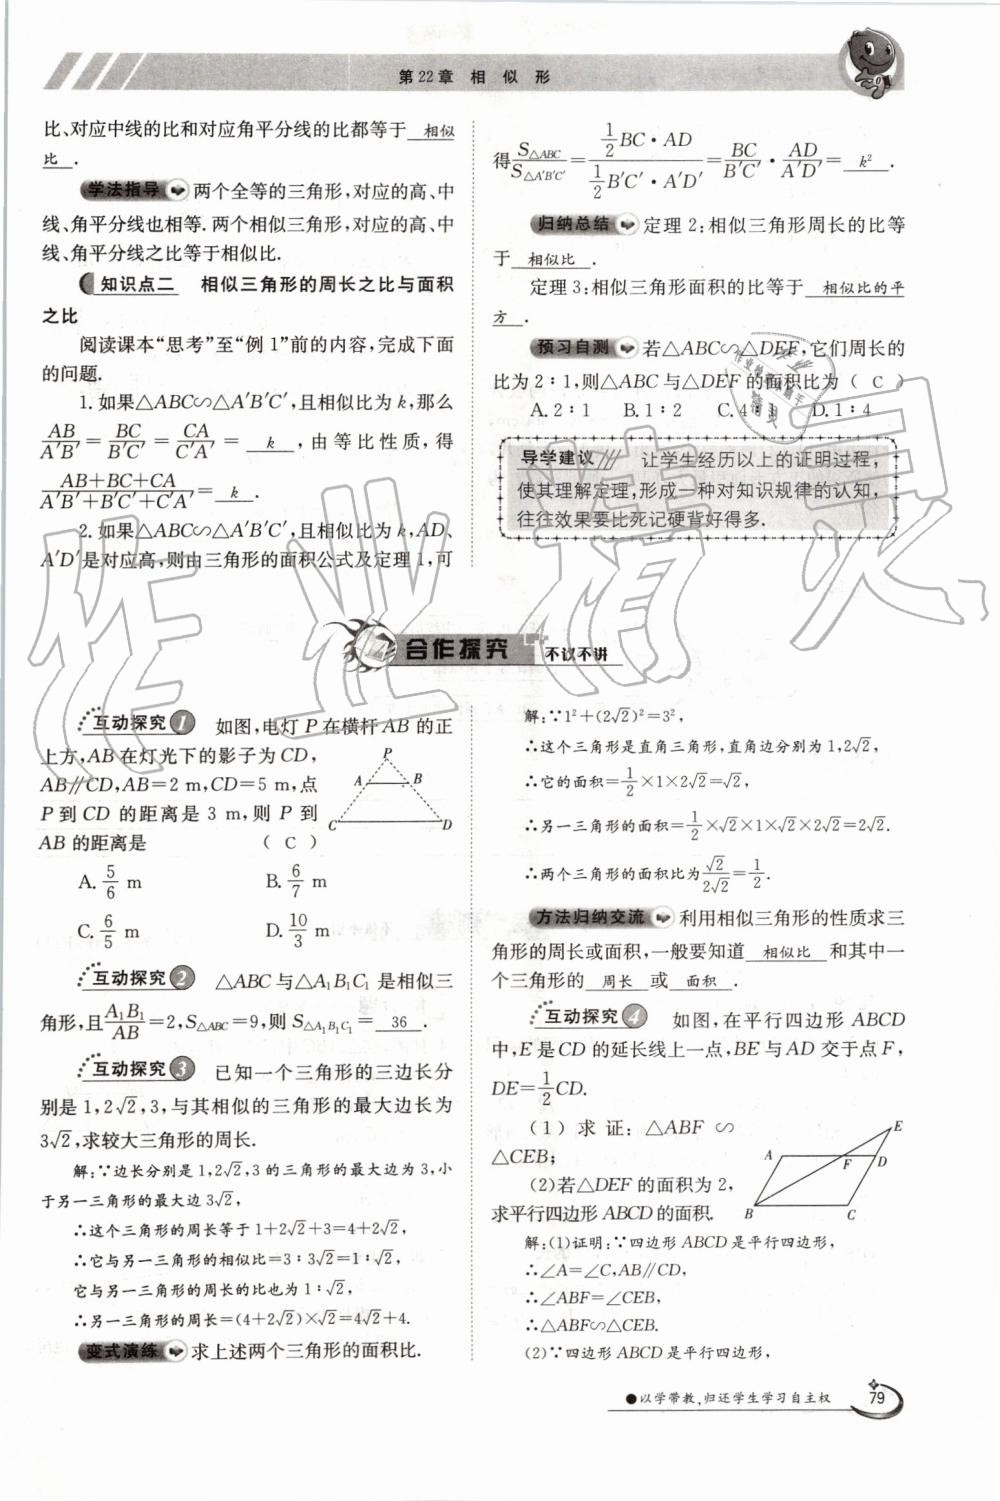 第22章 相 似 形
比、对应中线的比和对应角平分线的比都等于 相似
比 .
学法指导 两个全等的三角形,对应的高、中
线、角平分线也相等.两个相似三角形,对应的高、中
线、角平分线之比等于相似比.
知识点二 相似三角形的周长之比与面积
之比
阅读课本“思考”至“例1”前的内容,完成下面
的问题.
1.如果△ABC∽△A′B′C′,且相似比为k,那么
AB/A′B′=BC/B′C′=CA/C′A′= k ,由等比性质,得
(AB+BC+CA)/(A′B′+B′C′+C′A′)= k .
2.如果△ABC∽△A′B′C′,且相似比为k,AD、
A′D′是对应高,则由三角形的面积公式及定理1,可
得S△ABC/S△A′B′C′=(1/2 BC·AD)/(1/2 B′C′·A′D′)=BC/B′C′·AD/A′D′= k² .
归纳总结 定理2:相似三角形周长的比等
于 相似比 .
定理3:相似三角形面积的比等于 相似比的平
方 .
预习自测 若△ABC∽△DEF,它们周长的
比为2∶1,则△ABC与△DEF的面积比为( C )
A.2∶1 B.1∶2 C.4∶1 D.1∶4
导学建议 让学生经历以上的证明过程,
使其理解定理,形成一种对知识规律的认知,
往往效果要比死记硬背好得多.
合作探究 不议不讲
互动探究1 如图,电灯P在横杆AB的正
上方,AB在灯光下的影子为CD,
AB∥CD,AB=2 m,CD=5 m,点
P到CD的距离是3 m,则P到
AB的距离是 ( C )
P
A B
C D
A.5/6 m B.6/7 m
C.6/5 m D.10/3 m
互动探究2 △ABC与△A₁B₁C₁是相似三
角形,且A₁B₁/AB=2,S△ABC=9,则S△A₁B₁C₁= 36 .
互动探究3 已知一个三角形的三边长分
别是1,2√2,3,与其相似的三角形的最大边长为
3√2,求较大三角形的周长.
解:∵边长分别是1,2√2,3的三角形的最大边长为3,小
于另一三角形的最大边3√2,
∴这个三角形的周长等于1+2√2+3=4+2√2,
∴它与另一三角形的相似比=3∶3√2=1∶√2,
它与另一三角形的周长的比也为1∶√2,
∴另一三角形的周长=(4+2√2)×√2=4√2+4.
变式演练 求上述两个三角形的面积比.
解:∵1²+(2√2)²=3²,
∴这个三角形是直角三角形,直角边分别为1,2√2,
∴它的面积=1/2×1×2√2=√2,
∴另一三角形的面积=1/2×√2×1×√2×2√2=2√2.
∴两个三角形的面积比为√2/2√2=1/2.
方法归纳交流 利用相似三角形的性质求三
角形的周长或面积,一般要知道 相似比 和其中一
个三角形的 周长 或 面积 .
互动探究4 如图,在平行四边形ABCD
中,E是CD的延长线上一点,BE与AD交于点F,
DE=1/2CD.
(1)求证:△ABF∽
△CEB;
(2)若△DEF的面积为2,
求平行四边形ABCD的面积.
E
A F D
B C
解:(1)证明:∵四边形ABCD是平行四边形,
∴∠A=∠C,AB∥CD,
∴∠ABF=∠CEB,
∴△ABF∽△CEB.
(2)∵四边形ABCD是平行四边形,
●以学带教,归还学生学习自主权 79
作业精灵